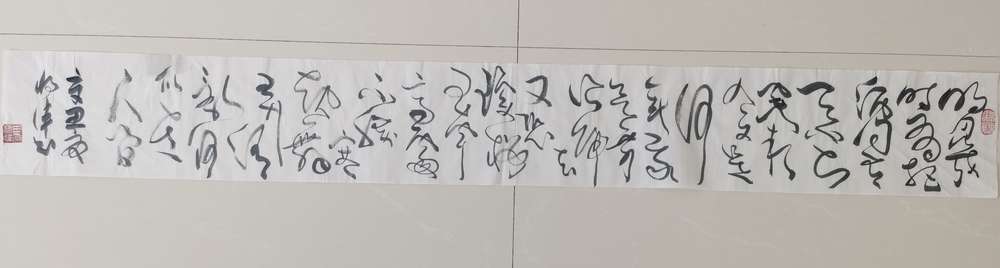 明月几
时有把
酒问青
天不知
天上宫阙
今夕是
何
年我欲
乘风
归去
又恐
琼楼
玉宇
高处
不胜
寒
起舞
弄清
影何
似在
人间
辛丑夏